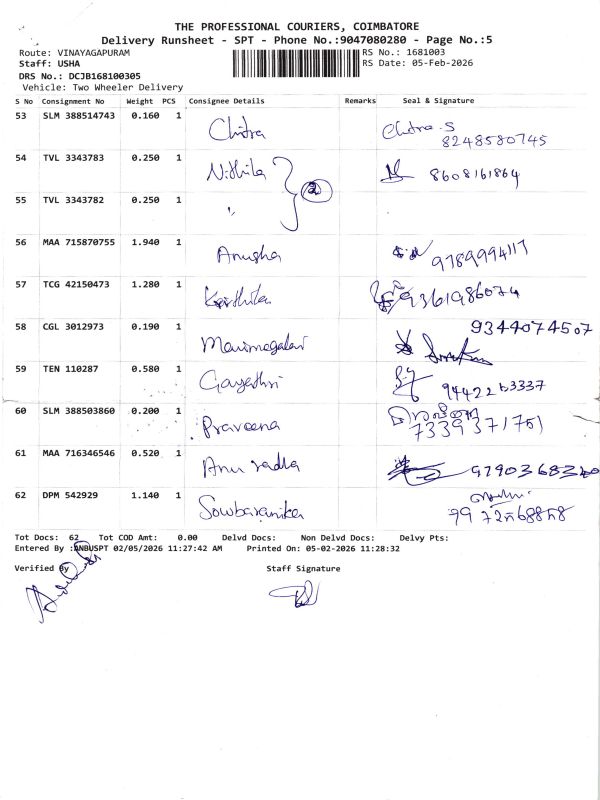 THE PROFESSIONAL COURIERS, COIMBATORE
Delivery Runsheet - SPT - Phone No.:9047080280 - Page No.:5
Route: VINAYAGAPURAM RS No.: 1681003
Staff: USHA RS Date: 05-Feb-2026
DRS No.: DCJB168100305
Vehicle: Two Wheeler Delivery
S No Consignment No Weight PCS Consignee Details Remarks Seal & Signature
53 SLM 388514743 0.160 1 Chitra Chitra.S
8248580745
54 TVL 3343783 0.250 1 Nithila 2 8608161864
55 TVL 3343782 0.250 1 "
56 MAA 715870755 1.940 1 Anusha 9789994117
57 TCG 42150473 1.280 1 Karthika 9361986074
58 CGL 3012973 0.190 1 Manimegalai 9344074507
59 TEN 110287 0.580 1 Gayathri 9442263337
60 SLM 388503860 0.200 1 Praveena பிரவீணா
7339371751
61 MAA 716346546 0.520 1 Anuradha 9790368320
62 DPM 542929 1.140 1 Sowbaranika
Tot Docs: 62 Tot COD Amt: 0.00 Delvd Docs: Non Delvd Docs: Delvy Pts:
Entered By :ANBUSPT 02/05/2026 11:27:42 AM Printed On: 05-02-2026 11:28:32
Verified By Staff Signature